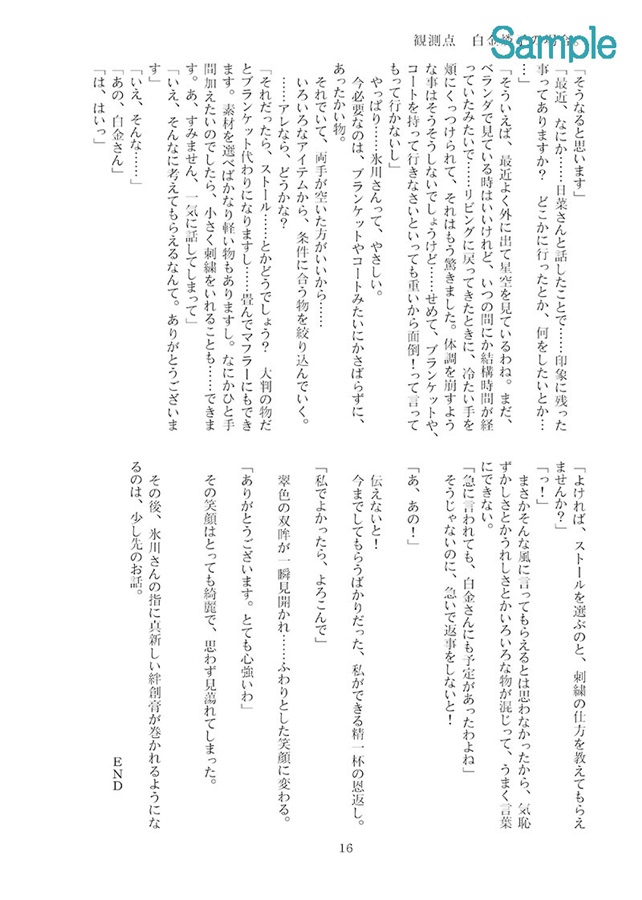 Sample
観測点　白金
「そうなると思います」
「最近、なにか……日菜さんと話したことで……印象に残った
事ってありますか？　どこかに行ったとか、何をしたいとか…
「そういえば、最近よく外に出て星空を見ているわね。まだ、
ベランダで見ている時はいいけれど、いつの間にか結構時間が経
っていたみたいで……リビングに戻ってきたときに、冷たい手を
頬にくっつけられて、それはもう驚きました。体調を崩すよう
な事はそうそうしないでしょうけど……せめて、ブランケットや、
コートを持って行きなさいといっても重いから面倒！って言って
もって行かないし」
やっぱり……氷川さんって、やさしい。
今必要なのは、ブランケットやコートみたいにかさばらずに、
あったかい物。
それでいて、両手が空いた方がいいから……
いろいろなアイテムから、条件に合う物を絞り込んでいく。
……アレなら、どうかな？
「それだったら、ストール……とかどうでしょう？　大判の物だ
とブランケット代わりになりますし……畳んでマフラーにもでき
ます。素材を選べばかなり軽い物もありますし。なにかひと手
間加えたいのでしたら、小さく刺繍をいれることも……できま
す。あ、すみません、一気に話してしまって」
「いえ、そんなに考えてもらえるなんて。ありがとうございま
す」
「いえ、そんな……」
「あの、白金さん」
「は、はいっ」
「よければ、ストールを選ぶのと、刺繍の仕方を教えてもらえ
ませんか？」
「っ！」
まさかそんな風に言ってもらえるとは思わなかったから、気恥
ずかしさとかうれしさとかいろいろな物が混じって、うまく言葉
にできない。
「急に言われても、白金さんにも予定があったわよね」
そうじゃないのに、急いで返事をしないと！
「あ、あの！」
伝えないと！
今までしてもらうばかりだった、私ができる精一杯の恩返し。
「私でよかったら、よろこんで」
翠色の双眸が一瞬見開かれ……ふわりとした笑顔に変わる。
「ありがとうございます。とても心強いわ」
その笑顔はとっても綺麗で、思わず見蕩れてしまった。
その後、氷川さんの指に真新しい絆創膏が巻かれるようにな
るのは、少し先のお話。
ＥＮＤ
16